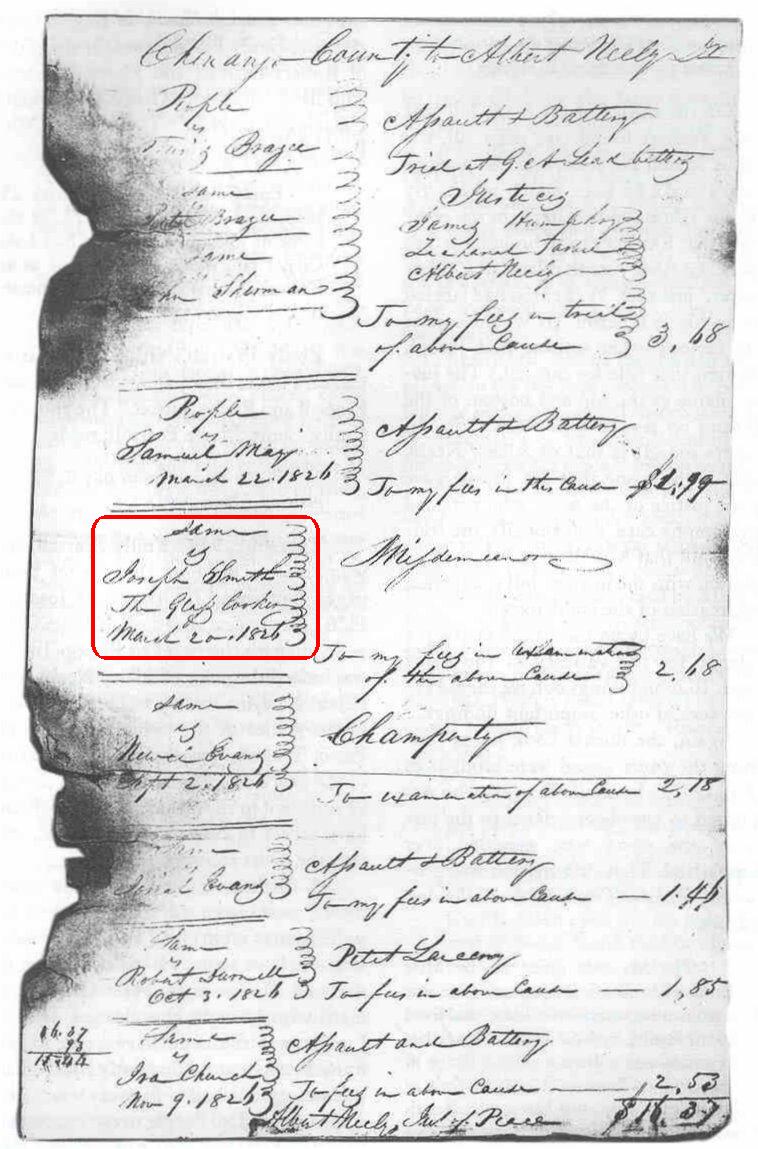 Chenango County to Albert Neely Dr
People
vs
Brazee
Assault & Battery
same
Brazee
same
Sherman
Tried at G. A. Leadbetters
Justices
James Humphrey
Zechariah Tarble
Albert Neely
To my fees in trial
of above Cause 3,68
People
vs
Samuel May
March 22. 1826
Assault & Battery
To my fees in this Cause $1,99
same
vs
Joseph Smith
The Glass looker
March 20. 1826
Misdemeanor
To my fees in examination
of the above Cause 2,68
same
vs
Newel Evans
Sept 2. 1826
Champerty
To examination of above Cause 2,18
same
Evans
Assault & Battery
To my fees in above Cause 1.46
Same
vs
Robert
Oct 3. 1826
Petit Larceny
To fees in above Cause 1,85
Same
vs
Ira Church
Nov 9. 1826
Assault and Battery
To fees in above Cause 2.53
$16.37
Albert Neely, Jus. of Peace
16.37